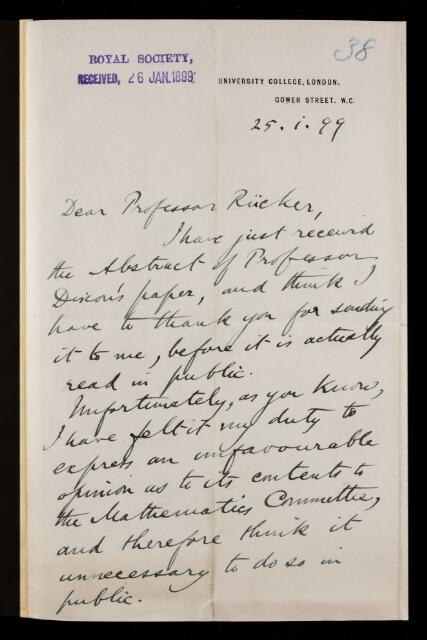 38
ROYAL SOCIETY,
RECEIVED, 26 JAN.1899.
UNIVERSITY COLLEGE, LONDON.
GOWER STREET. W.C.
25. i. 99
Dear Professor Rücker,
I have just received
the Abstract of Professor
Dixon's paper, and think I
have to thank you for sending
it to me, before it is actually
read in public.
Unfortunately, as you know,
I have felt it my duty to
express an unfavourable
opinion as to its contents to
the Mathematics Committee,
and therefore think it
unnecessary to do so in
public.